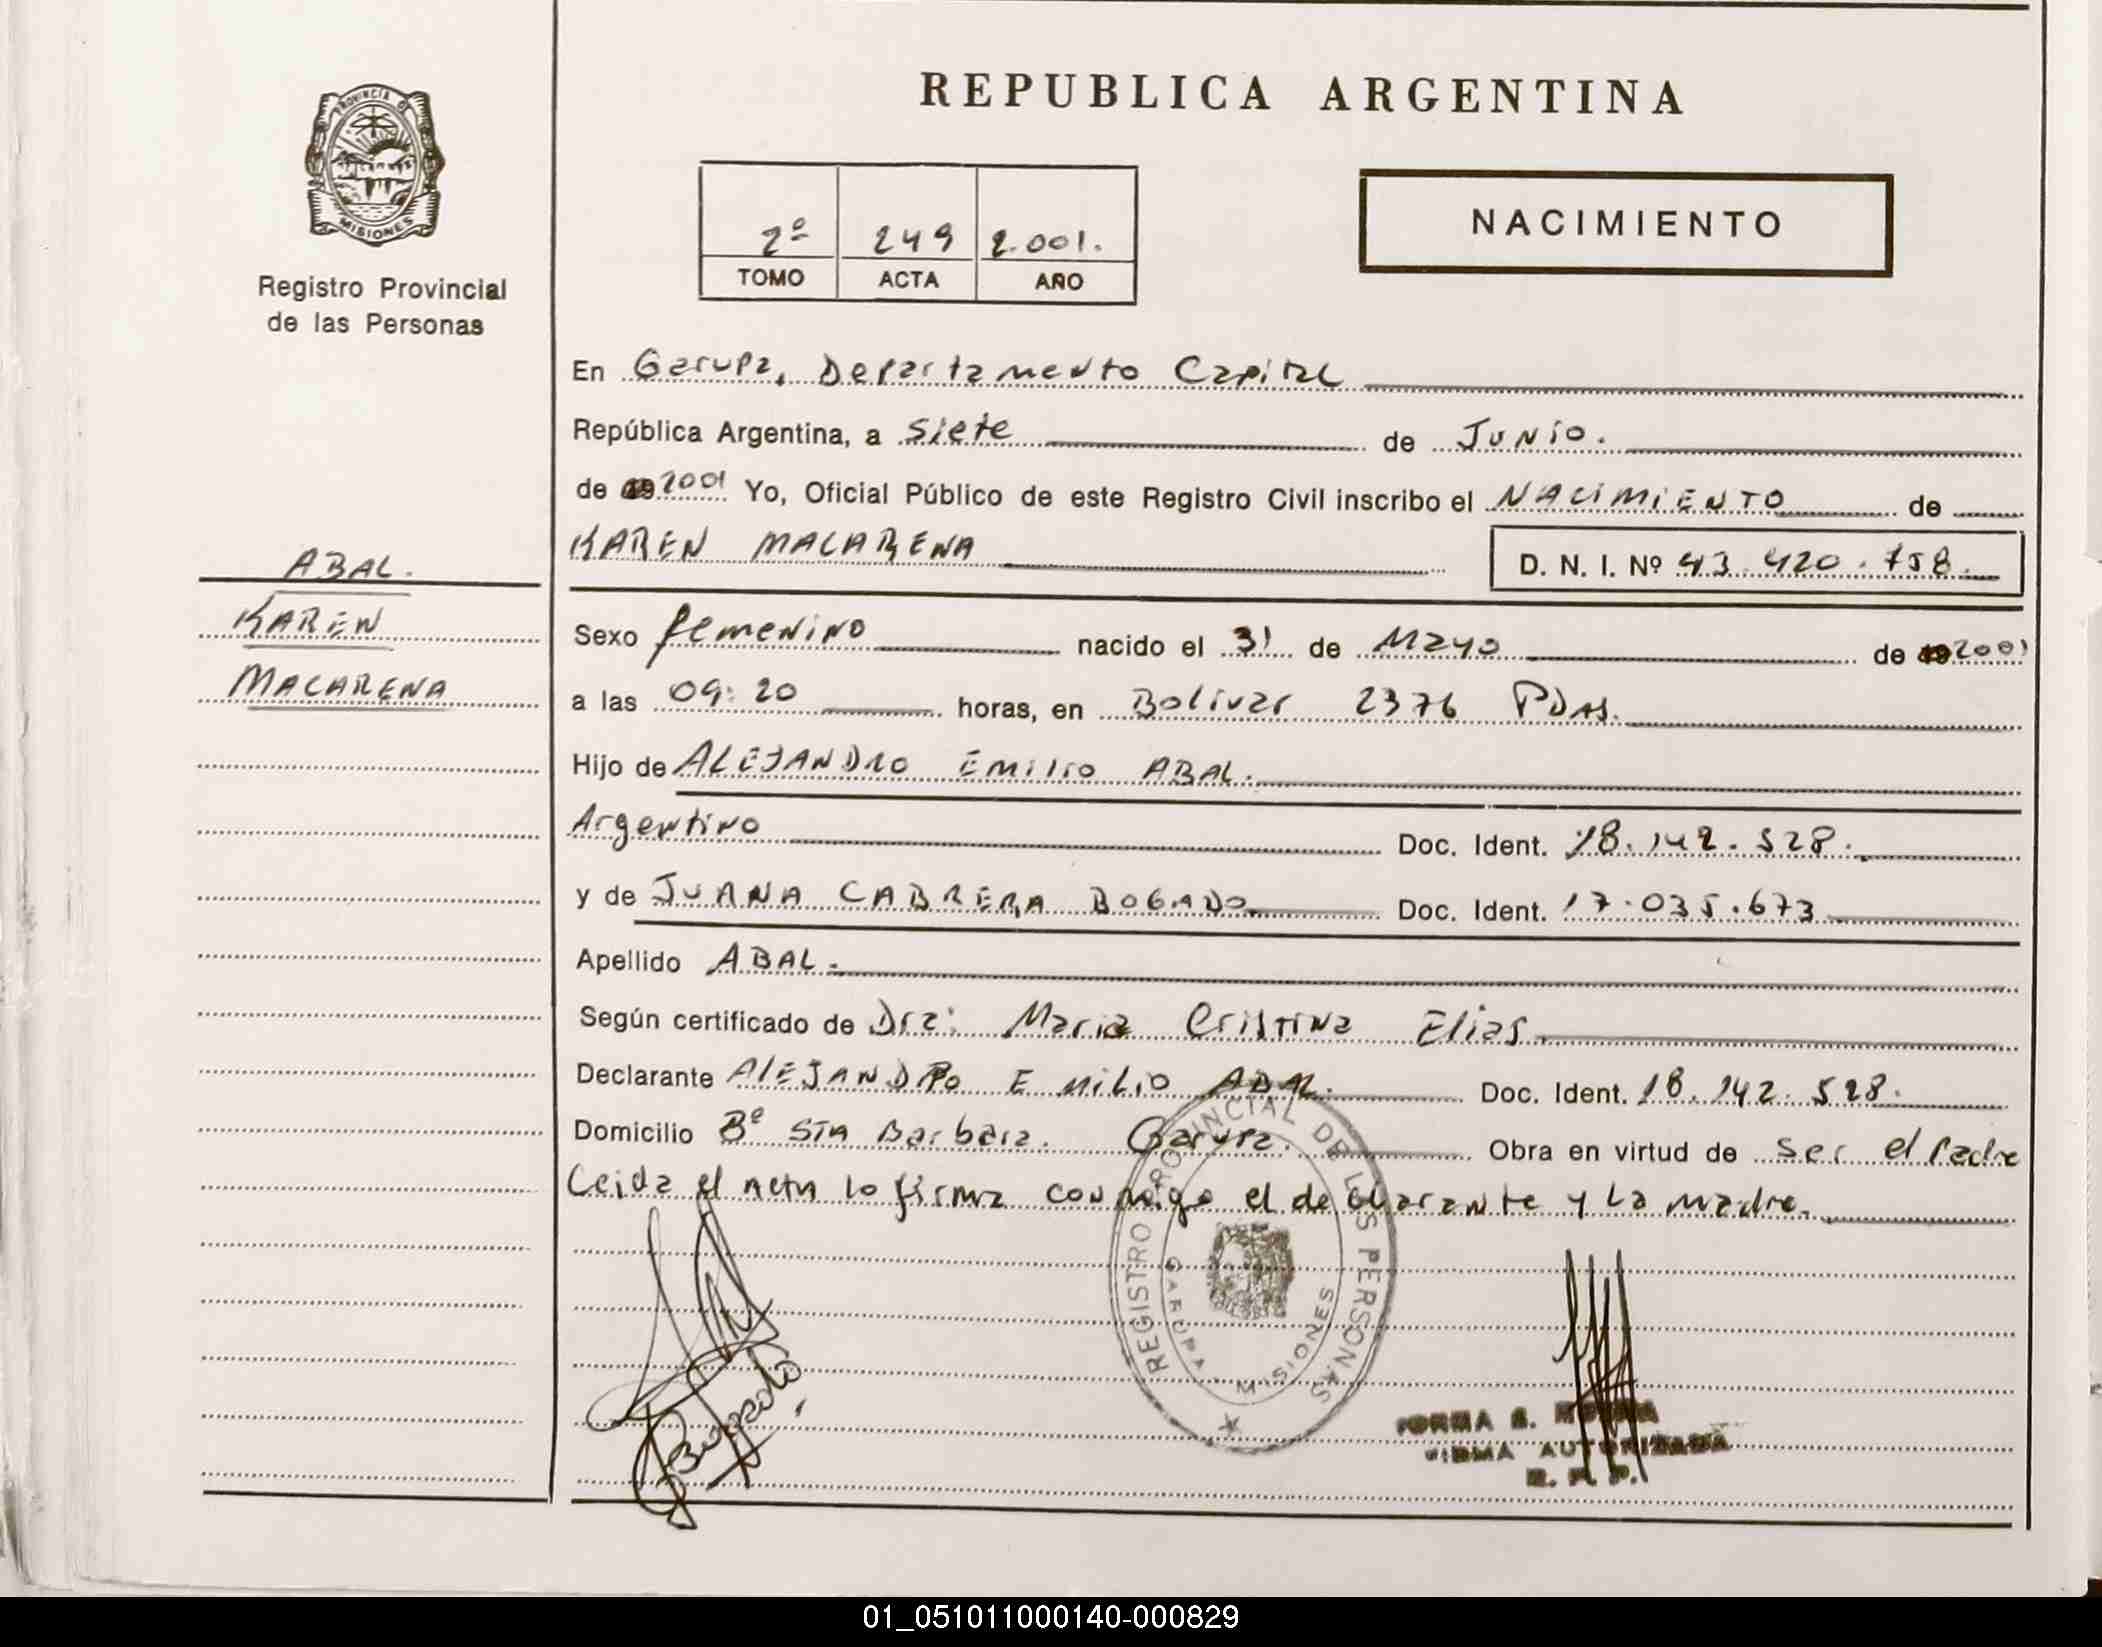 PROVINCIA D
MISIONES
Registro Provincial
de las Personas
ABAL.
KAREN
MACARENA
REPUBLICA ARGENTINA
2º 249 2.001.
TOMO ACTA AÑO
NACIMIENTO
En Garupa, Departamento Capital
República Argentina, a siete de Junio.
de 19 2001 Yo, Oficial Público de este Registro Civil inscribo el NACIMIENTO de
KAREN MACARENA D. N. I. Nº 43.420.758.
Sexo femenino nacido el 31 de Mayo de 19 2001
a las 09:20 horas, en Bolivar 2376 PDAS.
Hijo de ALEJANDRO EMILIO ABAL.
Argentino Doc. Ident. 18.142.528.
y de JUANA CABRERA BOGADO Doc. Ident. 17.035.673
Apellido ABAL.
Según certificado de Dra: Maria Cristina Elias
Declarante ALEJANDRO EMILIO ABAL. Doc. Ident. 18.142.528.
Domicilio Bº STA Barbara. Garupa. Obra en virtud de ser el Padre
Leida el acta lo firma conmigo el declarante y la madre.
REGISTRO PROVINCIAL DE LAS PERSONAS
GARUPA MISIONES
Bogado
S.
FIRMA AUTORIZADA
R. P. P.
01_051011000140-000829